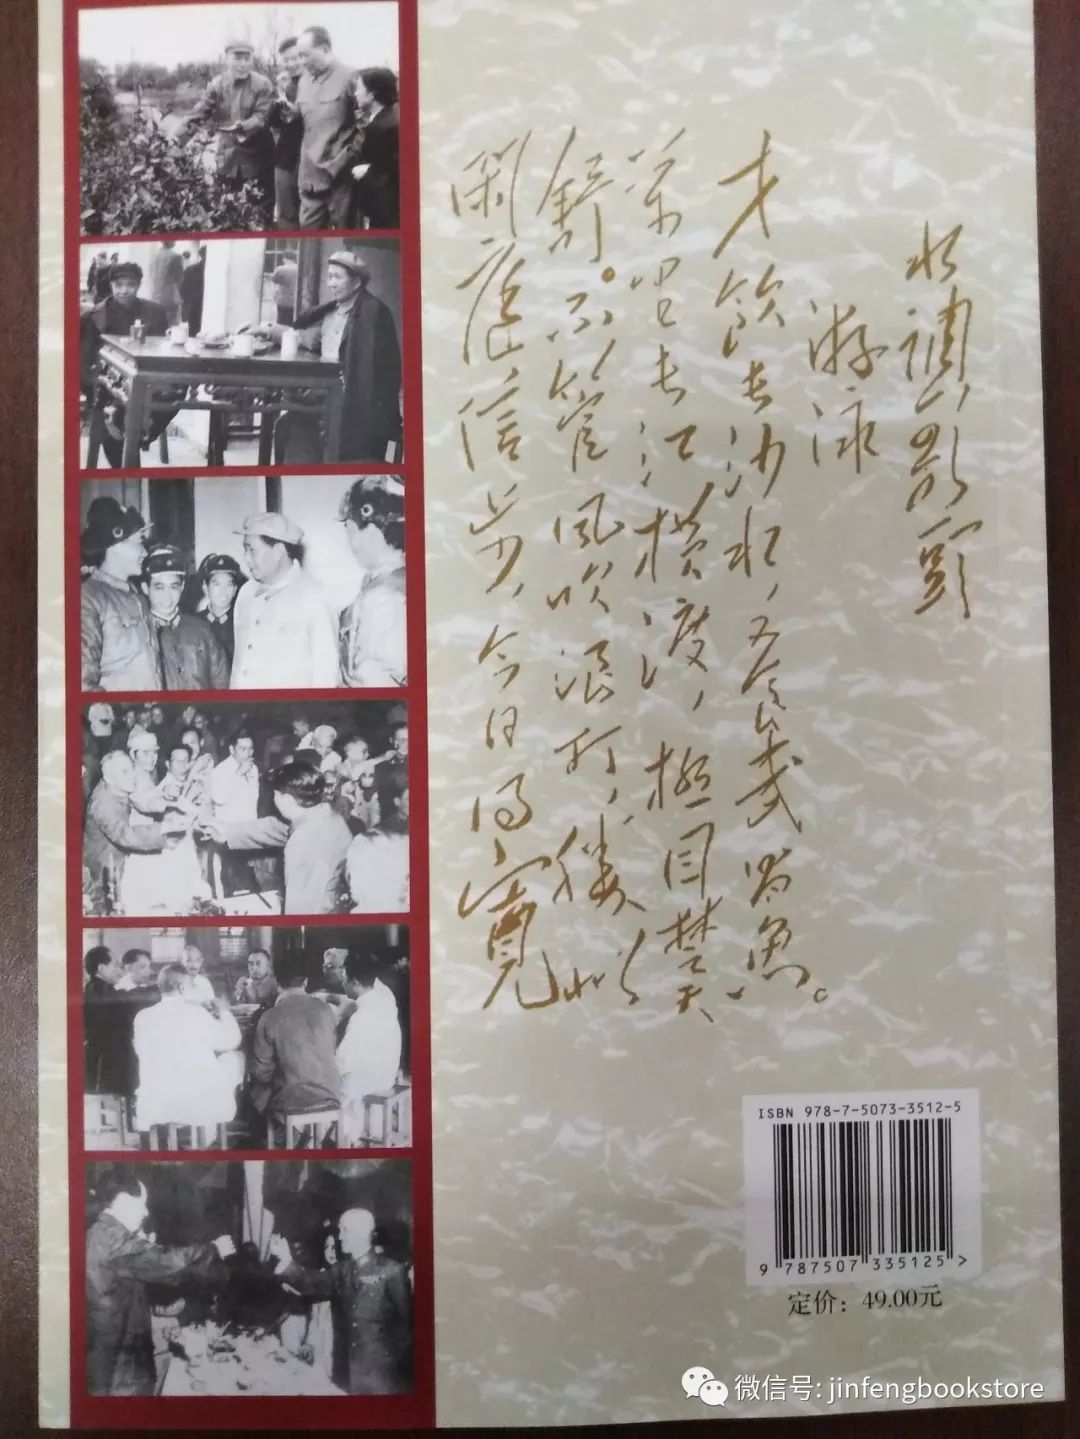 水調歌頭
游泳
才飲長沙水，又食武昌魚。
萬里長江橫渡，極目楚天
舒。不管風吹浪打，勝似
閑庭信步，今日得寬
ISBN 978-7-5073-3512-5
9 787507 335125 >
定价：49.00元
微信号: jinfengbookstore